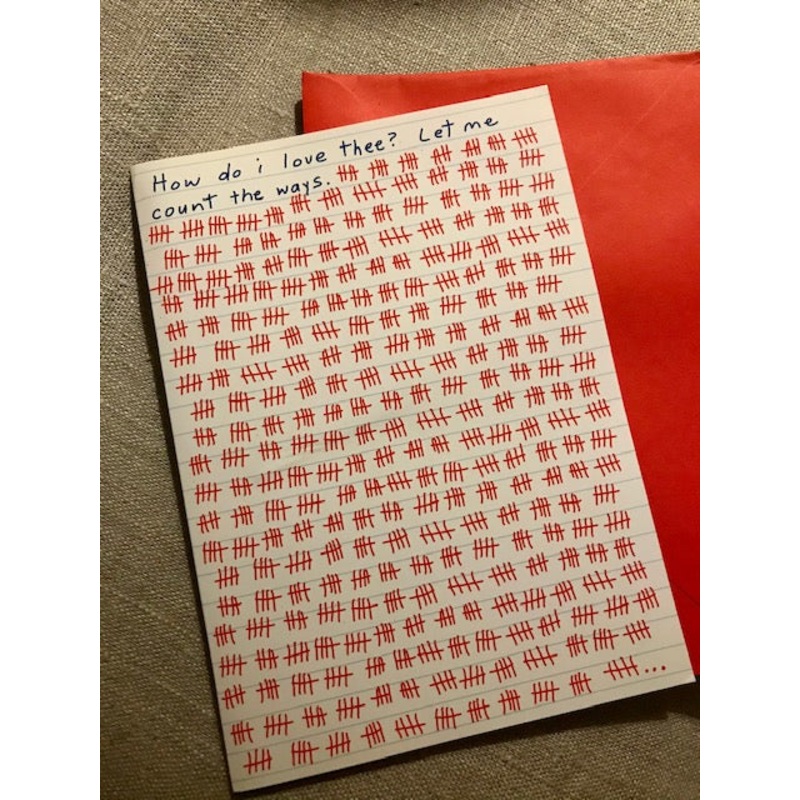 How do i love thee? Let me
count the ways.